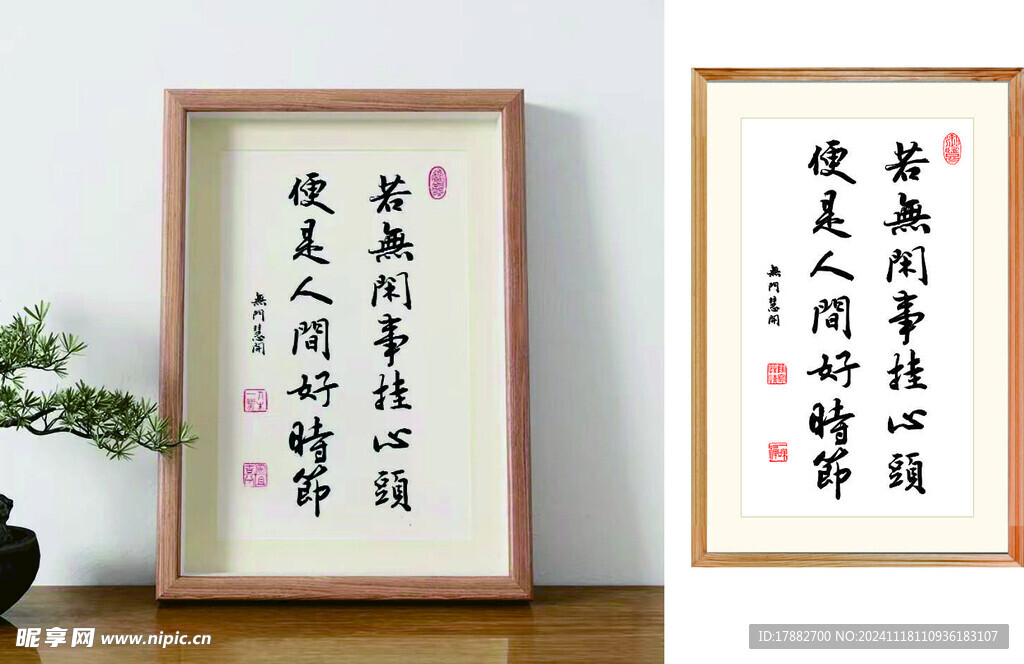 若無閑事挂心頭
便是人間好時節
無門慧開
若無閑事挂心頭
便是人間好時節
無門慧開
昵享网 www.nipic.cn
ID:17882700 NO:20241118110936183107